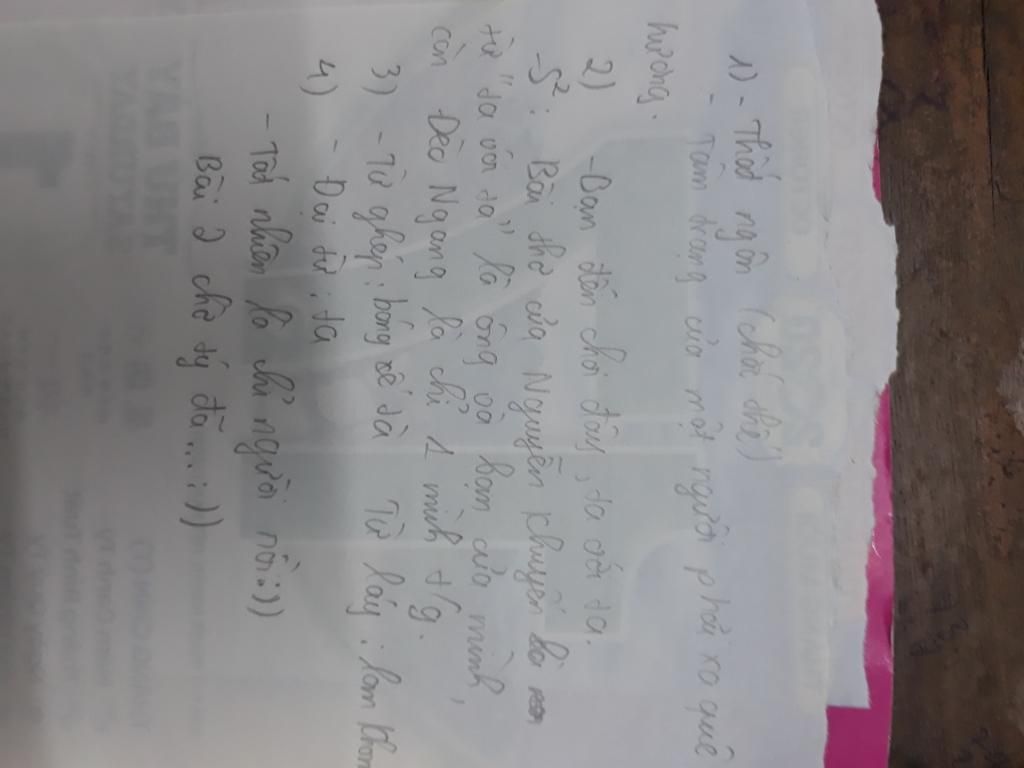 1) - Thất ngôn (chắc thế)
- Tâm trạng của một người phải xa quê
hương.
2) - Bạn đến chơi đây, ta với ta.
-S²: Bài thơ của Nguyễn Khuyến
từ "ta với ta" là ông và bạn của mình,
còn Đèo Ngang là chỉ 1 mình t/g.
3) - Từ ghép: bóng xế tà Từ láy: lom khom
4) - Đại từ: ta
- Tất nhiên là chỉ người rồi:))
Bài 2 chờ tý đã...:))